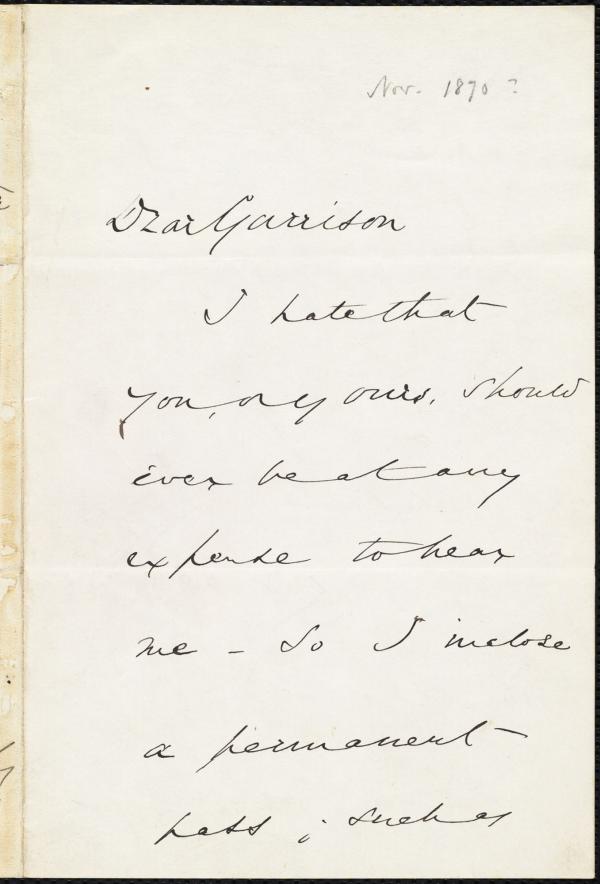 Nov. 1870?
Dear Garrison
I hate that
you, or yours, should
ever be at any
expense to hear
me - So I inclose
a permanent
pass ; such as